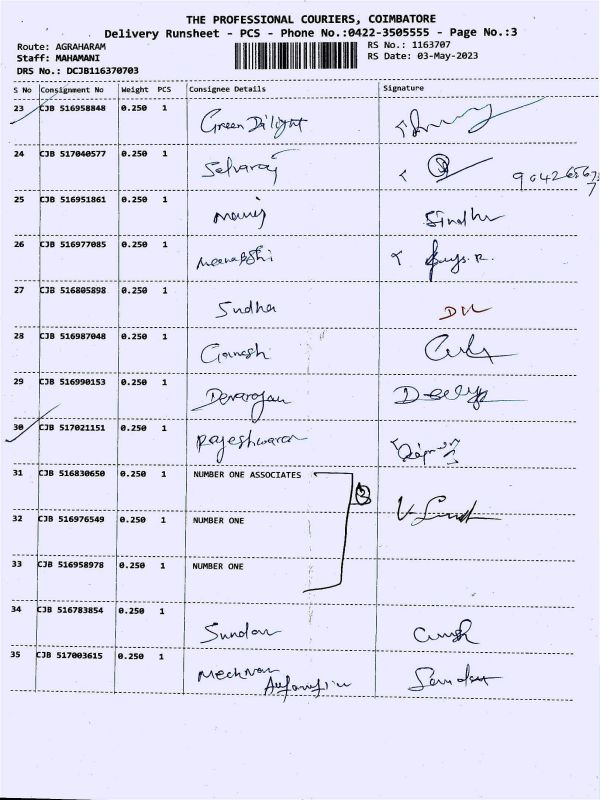 THE PROFESSIONAL COURIERS, COIMBATORE
Delivery Runsheet - PCS - Phone No.:0422-3505555 - Page No.:3
Route: AGRAHARAM RS No.: 1163707
Staff: MAHAMANI RS Date: 03-May-2023
DRS No.: DCJB116370703
S No Consignment No Weight PCS Consignee Details Signature
23 CJB 516958848 0.250 1 Green Da'light
24 CJB 517040577 0.250 1 Selvaraj
25 CJB 516951861 0.250 1 Sindhu
26 CJB 516977085 0.250 1 Meenakshi
27 CJB 516805898 0.250 1 Sudha
28 CJB 516987048 0.250 1 Ganesh
29 CJB 516990153 0.250 1 Devarajan
30 CJB 517021151 0.250 1 Rajeshwaran
31 CJB 516830650 0.250 1 NUMBER ONE ASSOCIATES 3
32 CJB 516976549 0.250 1 NUMBER ONE
33 CJB 516958978 0.250 1 NUMBER ONE
34 CJB 516783854 0.250 1 Sundar
35 CJB 517003615 0.250 1